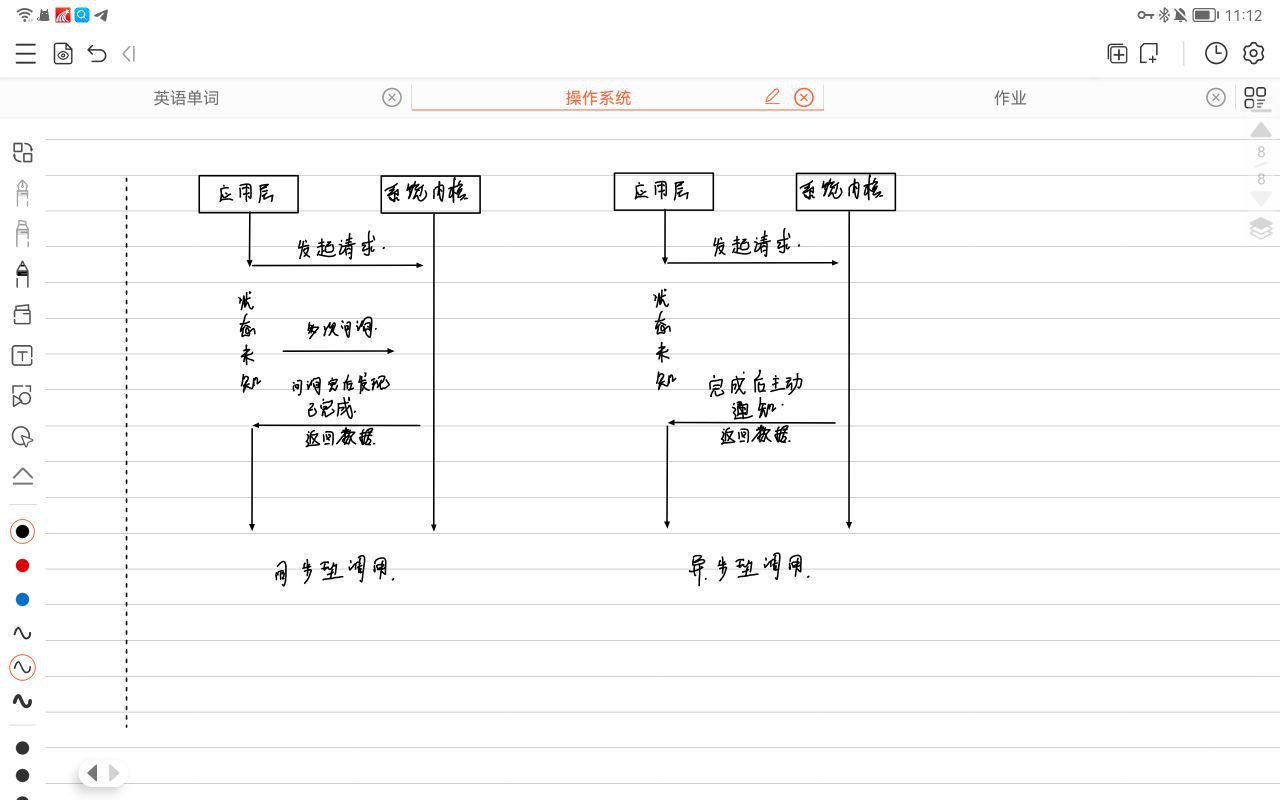 11:12
英语单词
操作系统
作业
8
8
应用层
系统内核
发起请求.
状
态
未
知
多次询问.
询问完后发现
已完成.
返回数据.
同步型调用.
应用层
系统内核
发起请求.
状
态
未
知
完成后主动
通知.
返回数据.
异步型调用.